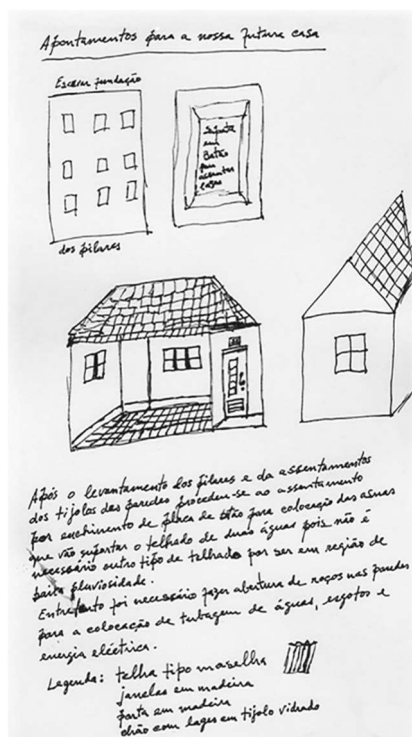 Apontamentos para a nossa futura casa
Escavar fundação
dos pilares
Sapata
em
Betão
para
assentar
casas
Após o levantamento dos pilares e da assentamentos
dos tijolos das paredes procedeu-se ao assentamento
por enchimento de placa de betão para colocação das asnas
que vão suportar o telhado de duas águas pois não é
necessário outro tipo de telhado por ser em região de
baixa pluviosidade.
Entretanto foi necessário fazer abertura de roços nas paredes
para a colocação de tubagem de águas, esgotos e
energia eléctrica.
Legenda: telha tipo marselha
janelas em madeira
porta em madeira
chão com lages em tijolo vidrado